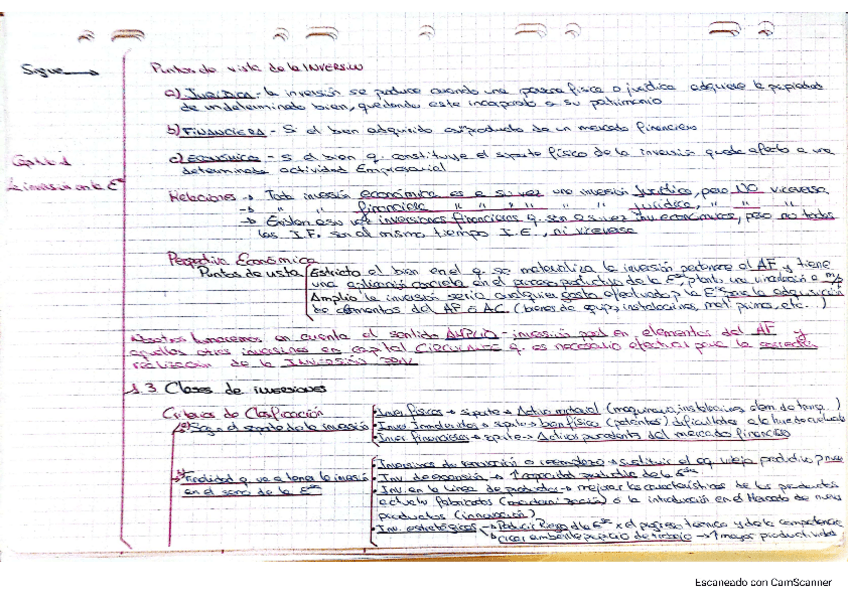 Sigue → Puntos de vista de la INVERSIÓN
a) JURÍDICA - la inversión se produce cuando una persona física o jurídica adquiere la propiedad
de un determinado bien, quedando este incorporado a su patrimonio
b) FINANCIERA - Si el bien adquirido es producto de un mercado financiero
c) ECONÓMICA - Si el bien q. constituye el soporte físico de la inversión queda afecto a una
determinada actividad Empresarial
Capítulo 1
La inversión en la Eª
Relaciones → Toda inversión económica es a su vez una inversión Jurídica, pero NO viceversa
→ " " financiera " " " " " jurídica, " " "
→ Existen a su vez inversiones financieras q. son a su vez Inv económicas, pero no todas
las I.F. son al mismo tiempo I.E., ni viceversa
Perspectiva Económica
Puntos de vista Estricto el bien en el q se materializa la inversión pertenece al AF y tiene
una aplicación concreta en el proceso productivo de la Eª, una vinculación a
Amplio la inversión sería cualquier gasto efectuado p la Eª para la adquisición
de elementos del AF o AC (bienes de equipo, instalaciones, mat. primas, etc.)
Nosotros tomaremos en cuenta el sentido AMPLIO - inversión en elementos del AF y
aquellas otras inversiones en capital CIRCULANTE q es necesario efectuar para la
realización de la INVERSIÓN
1.3 Clases de inversiones
Criterios de Clasificación
Según el soporte de la inversión
• Inver. físicas → soporte → Activo material (maquinaria, instalaciones, elem de transp.)
• Inver. Inmateriales → soporte → bien físico (patentes) dificultades a la hora de evaluarla
• Inver. financieras → soporte → Activos procedentes del mercado financiero
Finalidad q va a tener la inversión
en el seno de la Eª
• Inversiones de renovación o reemplazo → sustituir el eq. viejo productivo p nuevo
• Inv. de expansión → ↑ capacidad productiva de la Eª
• Inv. en la línea de productos → mejorar las características de los productos
actuales fabricados (modernización) o la introducción en el Mercado de nuevos
productos (innovación)
• Inv. estratégicas → Reducir Riesgo de la Eª x el progreso técnico y de la competencia
→ crear ambiente propicio de trabajo → ↑ mayor productividad
Escaneado con CamScanner